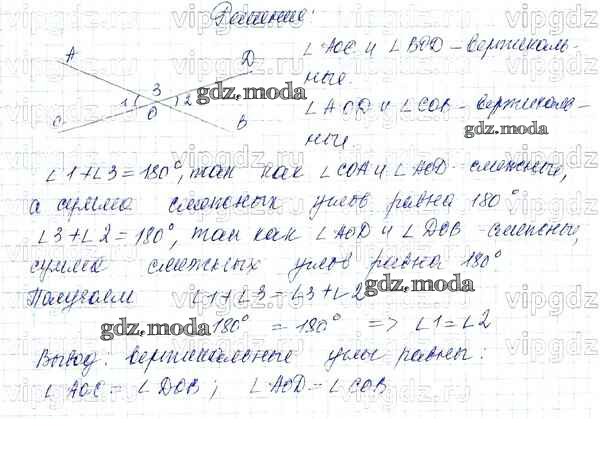 Решение:
A
D
1 3 2
O
C
B
∠AOC и ∠BOD – вертикаль-
ные.
∠AOD и ∠COB – вертикаль-
ные
∠1+∠3=180°, так как ∠COA и ∠AOD – смежные,
а сумма смежных углов равна 180°
∠3+∠2=180°, так как ∠AOD и ∠DOB – смежные,
сумма смежных углов равна 180°.
Получаем ∠1+∠3=∠3+∠2
180° = 180° => ∠1=∠2
Вывод: вертикальные углы равны:
∠AOC = ∠DOB; ∠AOD = ∠COB
gdz.moda
gdz.moda
gdz.moda
gdz.moda
vipgdz